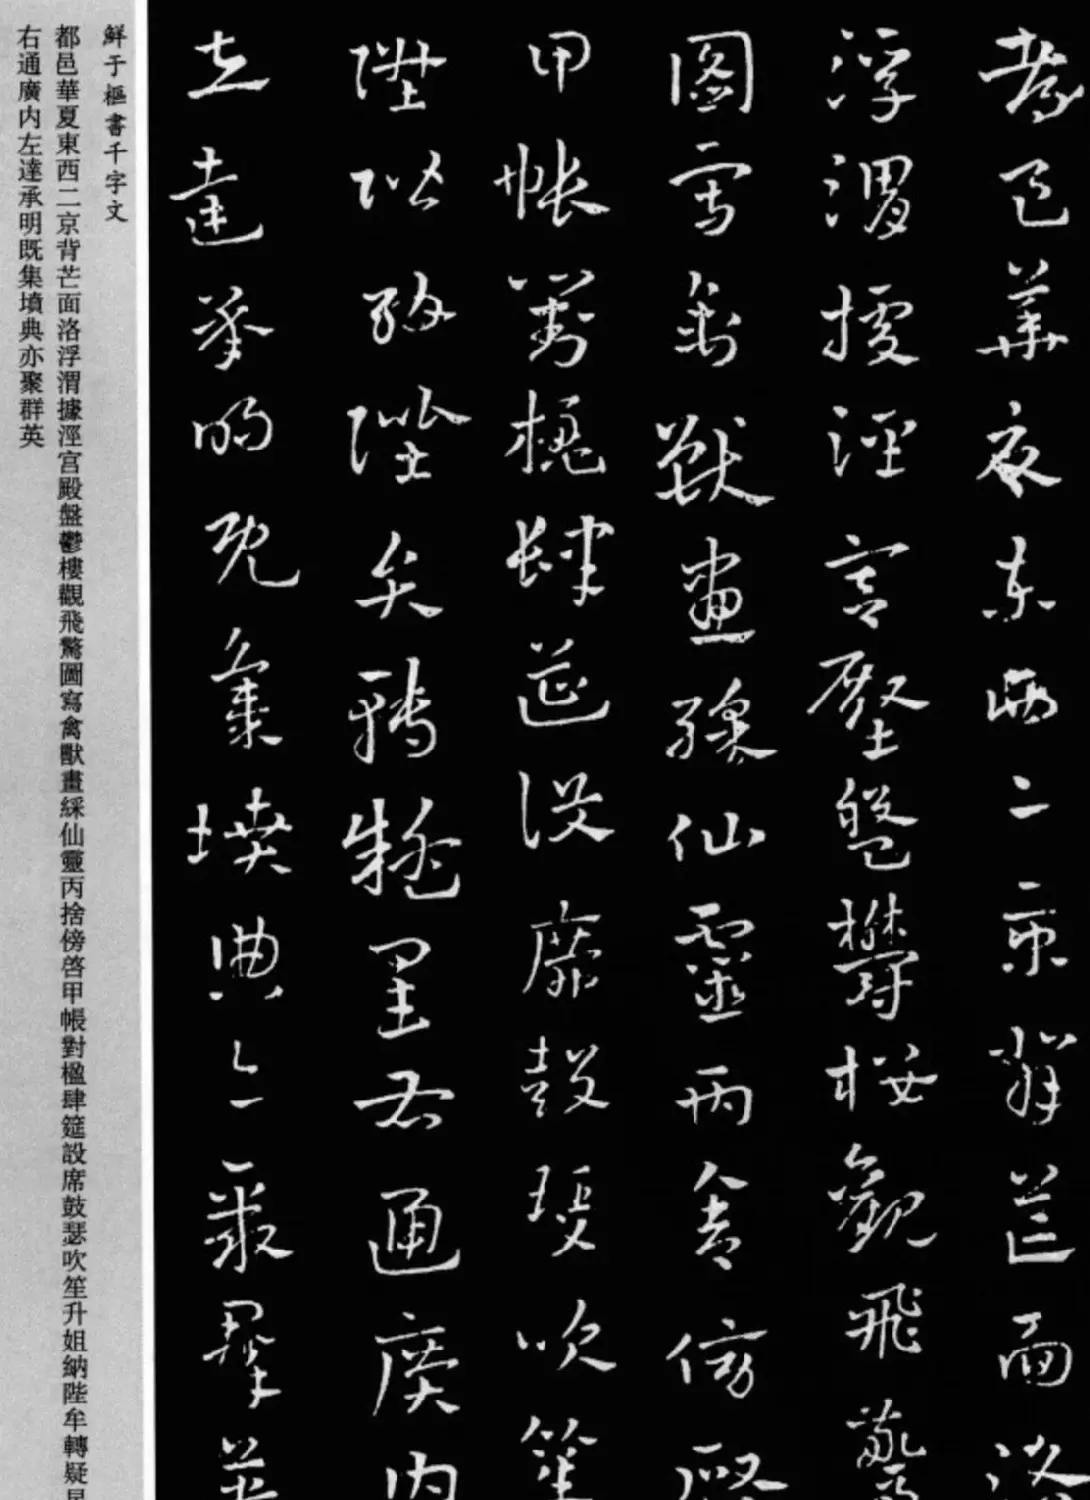 都邑華夏東西二京背芒面洛
浮渭據涇宮殿盤鬱樓觀飛驚
圖寫禽獸畫綵仙靈丙舍傍啓
甲帳對楹肆筵設席鼓瑟吹笙
陞階納陛弁轉疑星右通廣内
左達承明既集墳典亦聚群英
鮮于樞書千字文
都邑華夏東西二京背芒面洛浮渭據涇宫殿盤鬱樓觀飛驚圖寫禽獸畫綵仙靈丙捨傍啓甲帳對楹肆筵設席鼓瑟吹笙升姐納陛牟轉疑星
右通廣内左達承明既集墳典亦聚群英